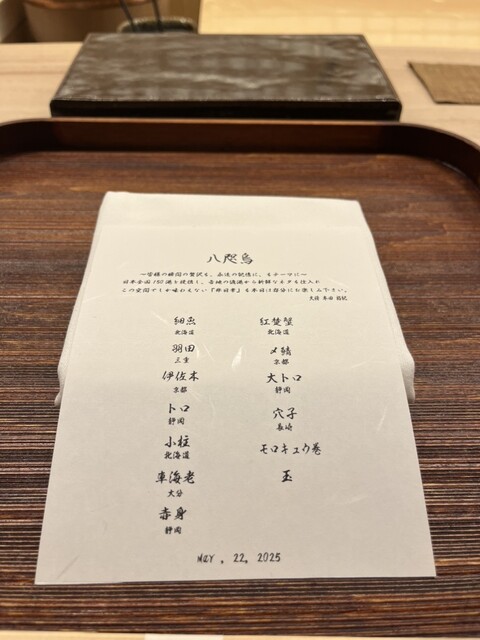 八咫烏
〜皆様の瞬間の贅沢を、永遠の記憶に。をテーマに〜
日本全国150港と提携し、各地の漁港から新鮮なネタを仕入れ
この空間でしか味わえない『非日常』を本日は存分にお楽しみ下さい。
細魚
北海道
羽田
三重
伊佐木
京都
トロ
静岡
小柱
北海道
車海老
大分
赤身
静岡
紅楚蟹
北海道
〆鯖
京都
大トロ
静岡
穴子
長崎
モロキュウ巻
玉
May , 22, 2025